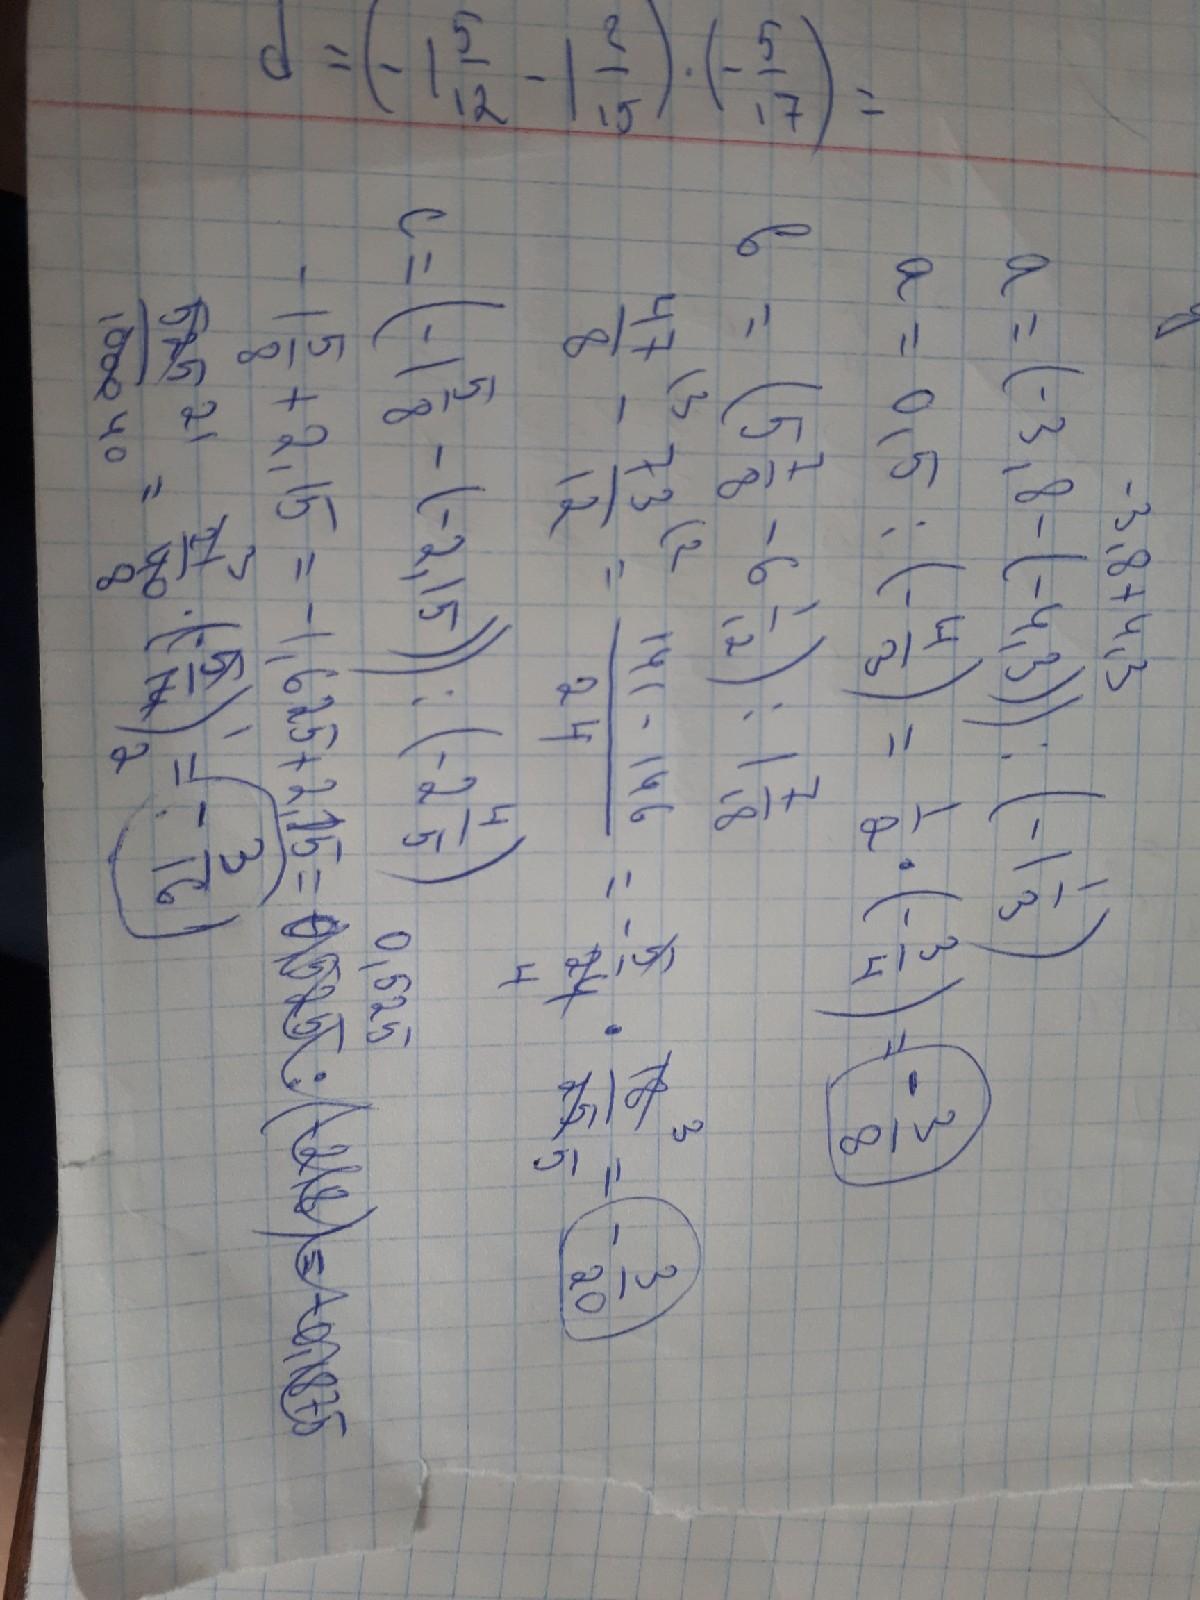 d = (-1 5/12 - 1 2/15) · (- 5/17) =
-3,8+4,3
a = (-3,8-(-4,3)) : (-1 1/3)
a = 0,5 : (- 4/3) = 1/2 · (- 3/4) = - 3/8
b = (5 7/8 - 6 1/12) : 1 7/18
47/8 (3 - 73/12 (2 = 141-146/24 = - 5/24 4 · 18 3/25 5 = - 3/20
c = (-1 5/8 - (-2,15)) : (-2 4/5)
0,525
-1 5/8 + 2,15 = -1,625+2,15 =
525 21/1000 40 = 21 3/40 8 · (- 5 1/14 2) = - 3/16